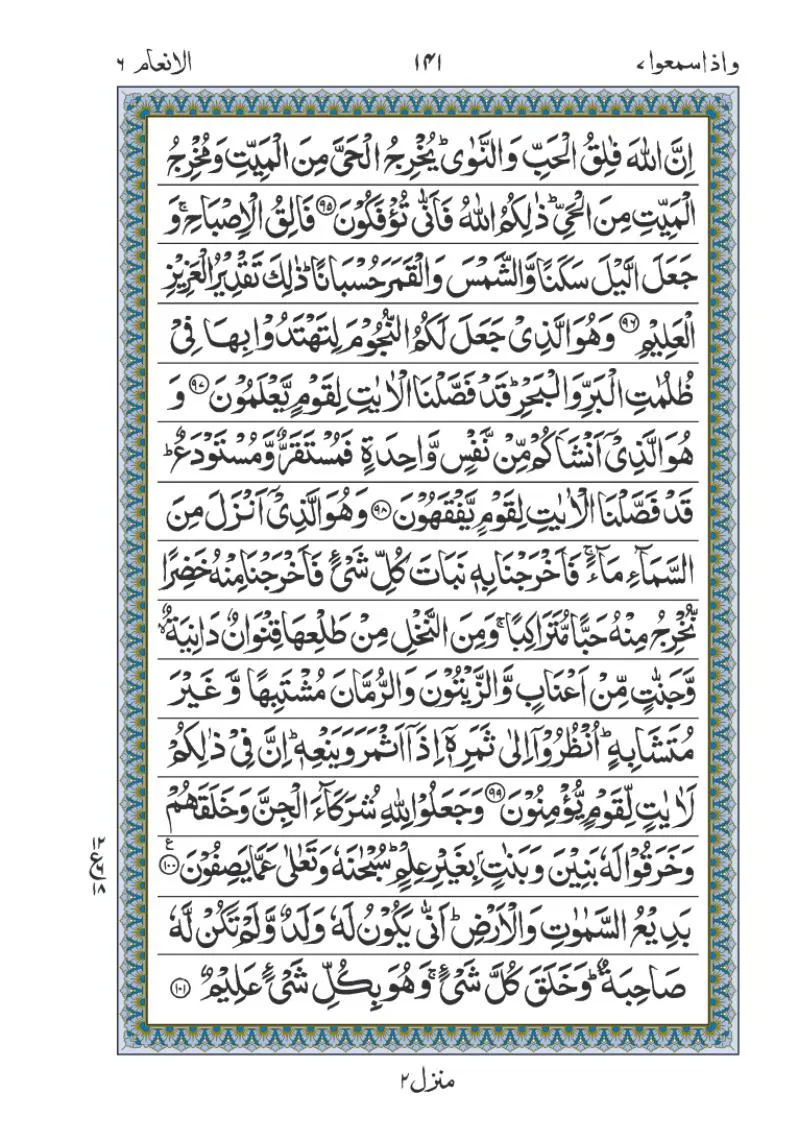 واذا سمعوا ۷ ۱۴۱ الانعام ۶
اِنَّ اللّٰهَ فَالِقُ الْحَبِّ وَالنَّوٰىؕ یُخْرِجُ الْحَیَّ مِنَ الْمَیِّتِ وَمُخْرِجُ
الْمَیِّتِ مِنَ الْحَیِّؕ ذٰلِكُمُ اللّٰهُ فَاَنّٰی تُؤْفَكُوْنَ ۹۵ فَالِقُ الْاِصْبَاحِۚ وَ
جَعَلَ الَّیْلَ سَكَنًا وَّالشَّمْسَ وَالْقَمَرَ حُسْبَانًاؕ ذٰلِكَ تَقْدِیْرُ الْعَزِیْزِ
الْعَلِیْمِ ۹۶ وَهُوَ الَّذِیْ جَعَلَ لَكُمُ النُّجُوْمَ لِتَهْتَدُوْا بِهَا فِیْ
ظُلُمٰتِ الْبَرِّ وَالْبَحْرِؕ قَدْ فَصَّلْنَا الْاٰیٰتِ لِقَوْمٍ یَّعْلَمُوْنَ ۹۷ وَ
هُوَ الَّذِیْۤ اَنْشَاَكُمْ مِّنْ نَّفْسٍ وَّاحِدَةٍ فَمُسْتَقَرٌّ وَّمُسْتَوْدَعٌؕ
قَدْ فَصَّلْنَا الْاٰیٰتِ لِقَوْمٍ یَّفْقَهُوْنَ ۹۸ وَهُوَ الَّذِیْۤ اَنْزَلَ مِنَ
السَّمَآءِ مَآءًۚ فَاَخْرَجْنَا بِهٖ نَبَاتَ كُلِّ شَیْءٍ فَاَخْرَجْنَا مِنْهُ خَضِرًا
نُّخْرِجُ مِنْهُ حَبًّا مُّتَرَاكِبًاۚ وَمِنَ النَّخْلِ مِنْ طَلْعِهَا قِنْوَانٌ دَانِیَةٌۙ
وَّجَنّٰتٍ مِّنْ اَعْنَابٍ وَّالزَّیْتُوْنَ وَالرُّمَّانَ مُشْتَبِهًا وَّغَیْرَ
مُتَشَابِهٍؕ اُنْظُرُوْۤا اِلٰی ثَمَرِهٖۤ اِذَاۤ اَثْمَرَ وَیَنْعِهٖؕ اِنَّ فِیْ ذٰلِكُمْ
لَاٰیٰتٍ لِّقَوْمٍ یُّؤْمِنُوْنَ ۹۹ وَجَعَلُوْا لِلّٰهِ شُرَكَآءَ الْجِنَّ وَخَلَقَهُمْ
وَخَرَقُوْا لَهٗ بَنِیْنَ وَبَنٰتٍۭ بِغَیْرِ عِلْمٍؕ سُبْحٰنَهٗ وَتَعٰلٰی عَمَّا یَصِفُوْنَ ۱۰۰ ع
۱۲ ع ۶ ۱۸
بَدِیْعُ السَّمٰوٰتِ وَالْاَرْضِؕ اَنّٰی یَكُوْنُ لَهٗ وَلَدٌ وَّلَمْ تَكُنْ لَّهٗ
صَاحِبَةٌؕ وَخَلَقَ كُلَّ شَیْءٍۚ وَهُوَ بِكُلِّ شَیْءٍ عَلِیْمٌ ۱۰۱
منزل ۲